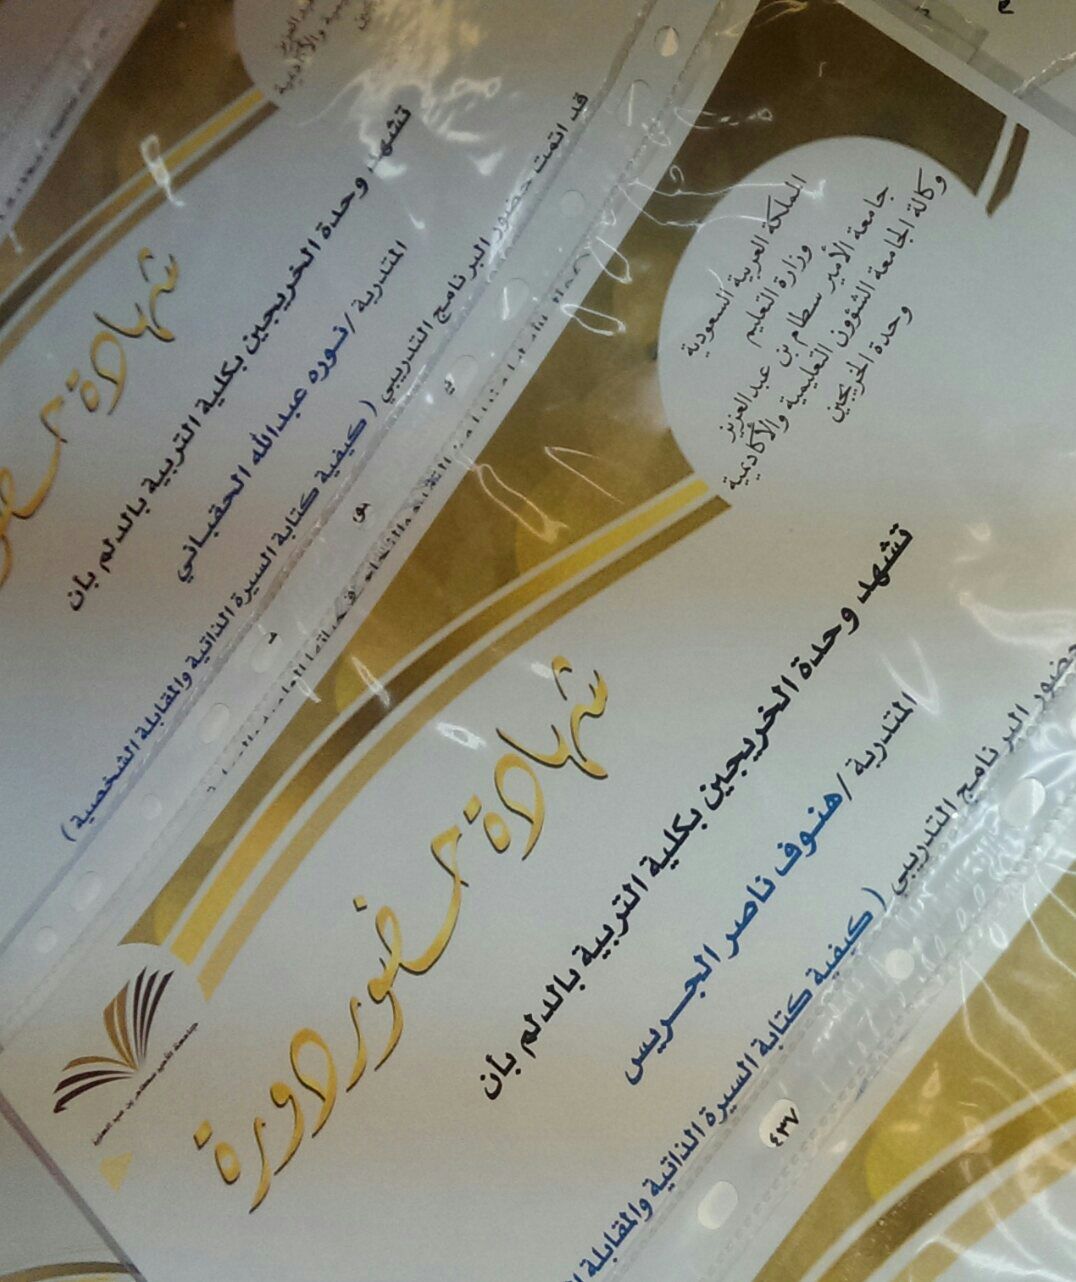 المملكة العربية السعودية
وزارة التعليم
جامعة الأمير سطام بن عبدالعزيز
وكالة الجامعة للشؤون التعليمية والأكاديمية
وحدة الخريجين
شهادة حضور دورة
تشهد وحدة الخريجين بكلية التربية بالدلم بأن
المتدربة / هنوف ناصر الجريس
حضور البرنامج التدريبي ( كيفية كتابة السيرة الذاتية والمقابلة
٤٣٧
والأكاديمية
شهادة
تشهد وحدة الخريجين بكلية التربية بالدلم بأن
المتدربة / نوره عبدالله الحقباني
قد اتمت حضور البرنامج التدريبي ( كيفية كتابة السيرة الذاتية والمقابلة الشخصية )